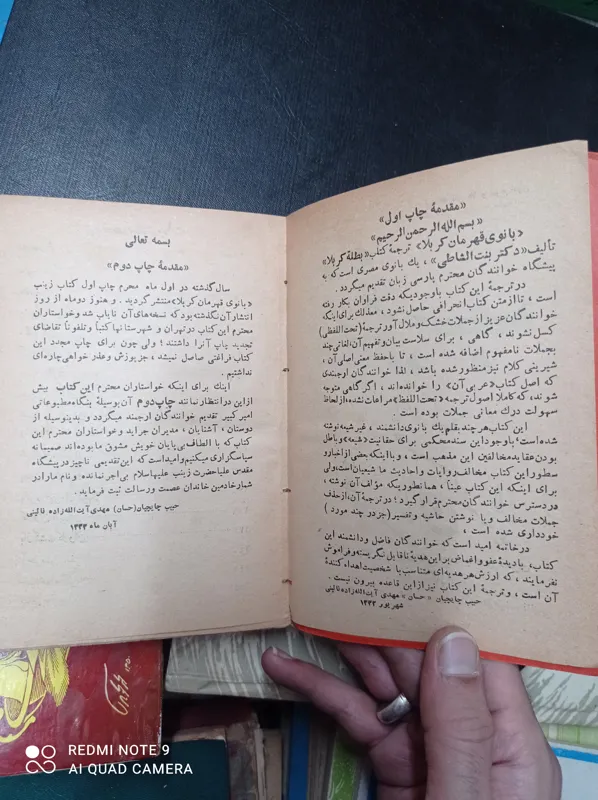 «مقدمهٔ چاپ اول»
«بسم الله الرحمن الرحیم»
«بانوی قهرمان کربلا» ترجمهٔ کتاب «بطلة کربلا»
تألیف «دکتر بنت الشاطی»، یك بانوی مصری است که به
پیشگاه خوانندگان محترم پارسی زبان تقدیم میگردد.
در ترجمهٔ این کتاب باوجودیکه دقت فراوان بکار رفته
است، تا از متن کتاب انحرافی حاصل نشود، معذلك برای اینکه
خوانندگان عزیز از جملات خشك و ملال آور ترجمهٔ (تحت اللفظی)
کسل نشوند، گاهی، برای سلاست بیان و تفهیم آن، لغاتی چند
بجملات نامفهوم اضافه شده است، تا باحفظ معنی اصلی آن،
شیرینی کلام نیز منظور شده باشد، لذا خوانندگان ارجمندی
که اصل کتاب «عربی آن» را خوانده‌اند، اگر گاهی متوجه
شوند، که کاملا اصول ترجمهٔ «تحت اللفظ» مراعات نشده، از لحاظ
سهولت درك معانی جملات بوده است.
این کتاب هر چند بقلم یك بانوی دانشمند، غیر شیعه نوشته
شده است؛ باوجود این سند محکمی برای حقانیت «شیعه» و باطل
بودن عقاید مخالفین این مذهب است، و با اینکه بعضی از اخبار و
سطور این کتاب مخالف روایات و احادیث ما شیعیان است، ولی
برای اینکه این کتاب عیناً، همانطوریکه مؤلف آن نوشته،
در دسترس خوانندگان محترم قرار گیرد؛ در ترجمهٔ آن، از حذف
جملات مخالف و یا نوشتن حاشیه و تفسیر (جز در چند مورد)
خودداری شده است،
در خاتمه امید است که خوانندگان فاضل و دانشمند این
کتاب، با دیدهٔ عفو و اغماض بر این هدیهٔ ناقابل نگریسته و فراموش
نفرمایند، که ارزش هر هدیه‌ای متناسب با شخصیت اهداء کنندهٔ
آن است، و ترجمهٔ این کتاب نیز از این قاعده بیرون نیست.
حبیب چایچیان «حسان» مهدی آیت‌الله‌زاده قائینی
شهریور ۱۳۳۲
بسمه تعالی
«مقدمهٔ چاپ دوم»
سال گذشته در اول ماه محرم چاپ اول کتاب زینب
«بانوی قهرمان کربلا» منتشر گردید. و هنوز دوماه از روز
انتشار آن نگذشته بود که نسخه‌های آن نایاب شد و خواستاران
محترم این کتاب در تهران و شهرستانها کتباً و تلفوناً تقاضای
تجدید چاپ آنرا داشتند؛ ولی چون برای چاپ مجدد این
کتاب فراغتی حاصل نمیشد، جز پوزش و عذر خواهی چاره‌ای
نداشتیم.
اینك برای اینکه خواستاران محترم این کتاب بیش
از این در انتظار نمانند چاپ دوم آن بوسیلهٔ بنگاه مطبوعاتی
امیر کبیر تقدیم خوانندگان ارجمند میگردد و بدینوسیله از
دوستان، آشنایان، مدیران جراید و خواستاران محترم این
کتاب که با الطاف بی‌پایان خویش مشوق ما بوده‌اند صمیمانه
سپاسگزاری میکنیم و امید است که این تقدیمی ناچیز در پیشگاه
مقدس علیا حضرت زینب علیها سلام بی‌اجر نمانده و نام ما را در
شمار خادمین خاندان عصمت و رسالت ثبت فرماید.
حبیب چایچیان (حسان) مهدی آیت‌الله‌زاده قائینی
آبان ماه ۱۳۳۳
REDMI NOTE 9
AI QUAD CAMERA